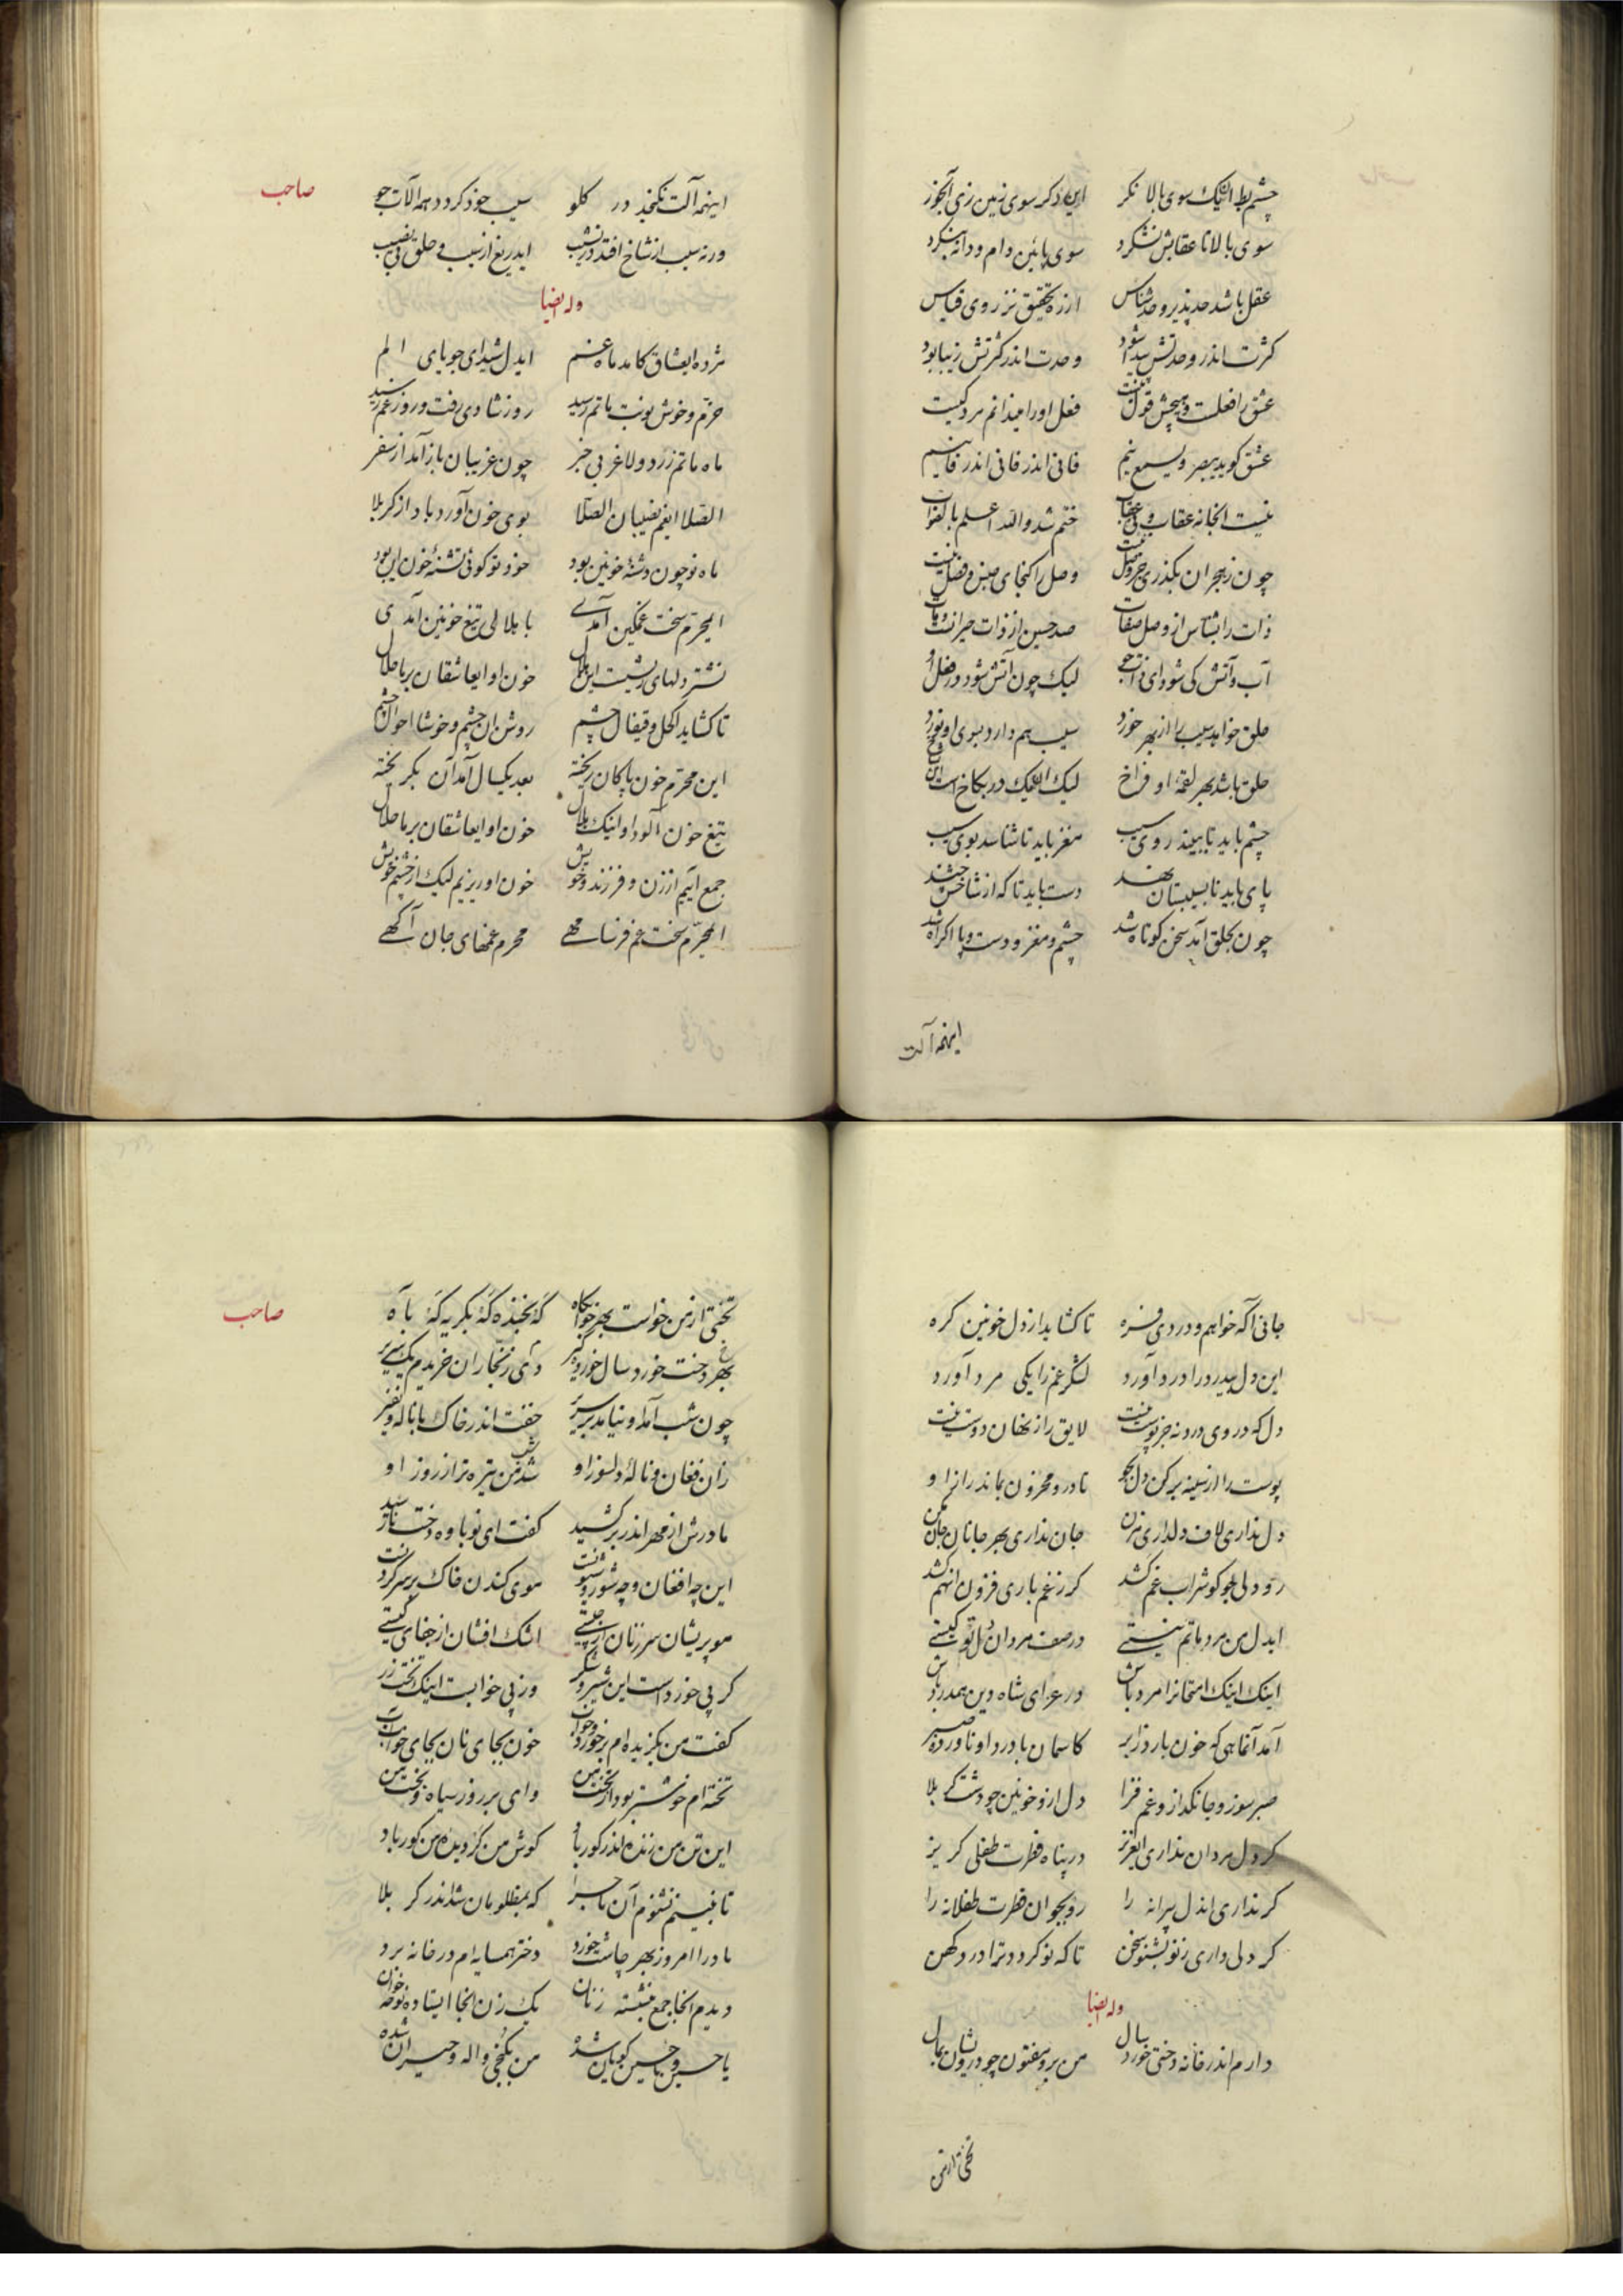 چشم بط اینک سوی بالا نکر این دکر سوی زمین زی آبخوز
سوی بالا تا عقابش نشکرد سوی پائین دام و دانه بنکرد
عقل باشد حد پذیر و حد شناس از ره تحقیق نز روی قیاس
کثرت اندر وحدتش پیدا شود وحدت اندر کثرتش زیبا بود
عشق را فعلست و هیچش قول نیست فعل او را میندانم مرد کیست
عشق کوید یبصر و یسمع بیم فانی اندر فانی اندر فانیم
نیست انجا نه عقاب و نی عقاب ختم شد والله اعلم بالصواب
چون ز هجران بکذری جز وصل نیست وصل را کنجای جنس و فصل نیست
ذات را بشناس از وصل صفات صد حسین از ذات حیرانت و مات
آب و آتش کی شود ای ذات جو لیک چون آتش شود در فعل او
حلق خواهد سیب را از بهر خورد سیب هم دارد سوی او نورد
حلق باشد بهر لقمه او فراخ لیک اینک در بکاخ است این
چشم باید تا ببیند روی سیب مغز باید تا شناسد بوی سیب
پای باید تا بسیبستان نهد دست باید تا که از شاخش جهند
چون بحلق آمد سخن کوتاه شد چشم و مغز و دست و پا اکراه شد
اینهمه آلت
صاحب
اینهمه آلت نکنجد در کلو سیب خود کرود همه آلات جو
ورنه سیب از شاخ افتد در نشیب ایدریغ از سیب و حلق بی نصیب
وله ایضا
مژده ایعشاق کامد ماه غم ایدل شیدای جویای الم
خرّم و خوش نوبت ماتم رسید روز شادی رفت و روز غم رسید
ماه ماتم زرد و لاغر بی خبر چون غریبان باز آمد از سفر
الصّلا ایغم نصیبان الصّلا بوی خون آورد باد از کربلا
ماه نو چون دشنهٔ خونین بود خود تو کوئی تشنهٔ خون این بود
ایمحرّم سخت غمکین آمدی با هلالی تیغ خونین آمدی
نشتر دلهای ریشست این هلال خون او ایعاشقان بر ما حلال
تا کشاید اکحل و قیفال چشم روشن ان چشم و خوشا احوال چشم
این محرّم خون پاکان ریخته بعد یکسال آمد آن بکریخته
تیغ خون آلود او اینک هلال خون او ایعاشقان بر ما حلال
جمع آئیم از زن و فرزند و خویش خون او ریزیم لیک از چشم خویش
ایمحرّم سخت غم فرسا مهی محرم غمهای جان آکهی
جانی آکه خواهم و دردی فره تا کشاید از دل خونین کره
این دل بیدرد را درد آورد لشکر غم را یکی مرد آورد
دل که در وی درد نه جز پوست نیست لایق راز نهان دوست نیست
پوست را از سینه بر کن دل بجو تا درو محزون بماند راز او
دل نداری لاف دلداری مزن جان نداری بهر جانان جان مکن
رو دلی جو کو شراب غم کشد کر ز غم باری فزون انهم کشد
ایدل من مرد ماتم نیستی در صف مردان دل تو کیستی
اینک اینک امتحانرا مرد باش در عزای شاه دین همدرد باش
آمد آنماهی که خون بارد ز ابر کاسمان با درد او ناورده صبر
صبر سوز و جانکداز و غم فزا دل از و خونین چو دشت کربلا
کر دل مردان نداری ایعزیز در پناه فطرت طفلی کریز
کر نداری اندل پیرانه را رو بجو ان فطرت طفلانه را
کر دلی داری ز نو بشنو سخن تا که نو کردد ترا درد کهن
وله ایضا
دارم اندر خانه دختی خورد سال من برو مفتون چو درویشان بمال
تختی از من
صاحب
تختی از من خواست بهر خوابکاه که بخنده که بکریه که بآه
بهر دخت خورد سال خورد کیر دی ز نجّاران خریدم یک سریر
چون شب آمد او نیامد بر سریر خفت اندر خاک با ناله و نفیر
زان فغان و نالهٔ دلسوز او شد شب من تیره تر از روز او
مادرش از مهر اندر بر کشید کفت ای نوباوه دخت نازشید
این چه افغان و چه شور و شیونت موی کندن خاک بر سر کردنت
مو پریشان سر زنان از چیستی اشک افشان از جفای کیستی
کر پی خورد است این شیر و شکر وز پی خوابست اینک تخت زر
کفت من بکزیده ام بر خورد و خواب خون بجای نان بجای خواب
تخته ام خوشتر بود از تخت من وای بر روز سیاه و بخت من
این تن من زنده اندر کور باد کوش من کر دیده من کور باد
تا نبینم نشنوم آن ماجرا که بمظلومان شد اندر کربلا
مادرا امروز بهر چاشت خورد دختر همسایه ام در خانه برد
دیدم انجا جمع بنشسته زنان یک زن انجا ایستاده نوحه خوان
یا حسین و یا حسین کویان شده من بکنجی واله و حیران شده